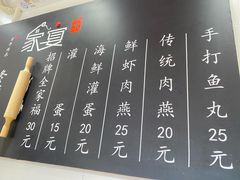 家宴
招牌全家福 30元
灌蛋 15元
海鲜灌蛋 20元
鲜虾肉燕 25元
传统肉燕 20元
手打鱼丸 25元